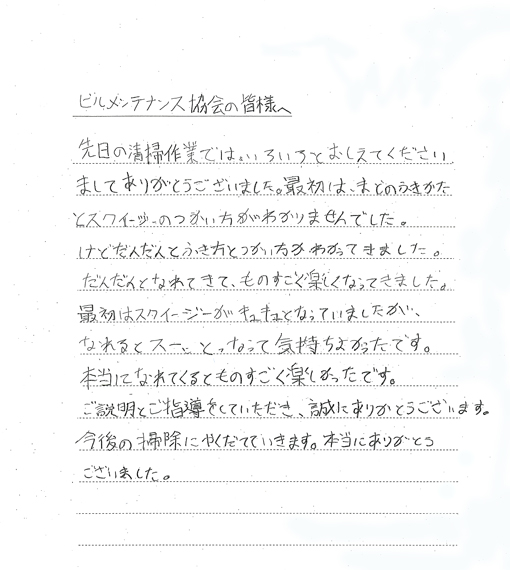 ビルメンテナンス協会の皆様へ
先日の清掃作業では、いろいろとおしえてください
ましてありがとうございました。最初は、まどのふきかた
とスクイージーのつかい方がわかりませんでした。
けどだんだんとふき方とつかい方がわかってきました。
だんだんとなれてきて、ものすごく楽しくなってきました。
最初はスクイージーがキュキュとなっていましたが、
なれるとスーっとなって気持ちよかったです。
本当になれてくるとものすごく楽しかったです。
ご説明とご指導をしていただき、誠にありがとうございます。
今後の掃除にやくだてていきます。本当にありがとう
ございました。